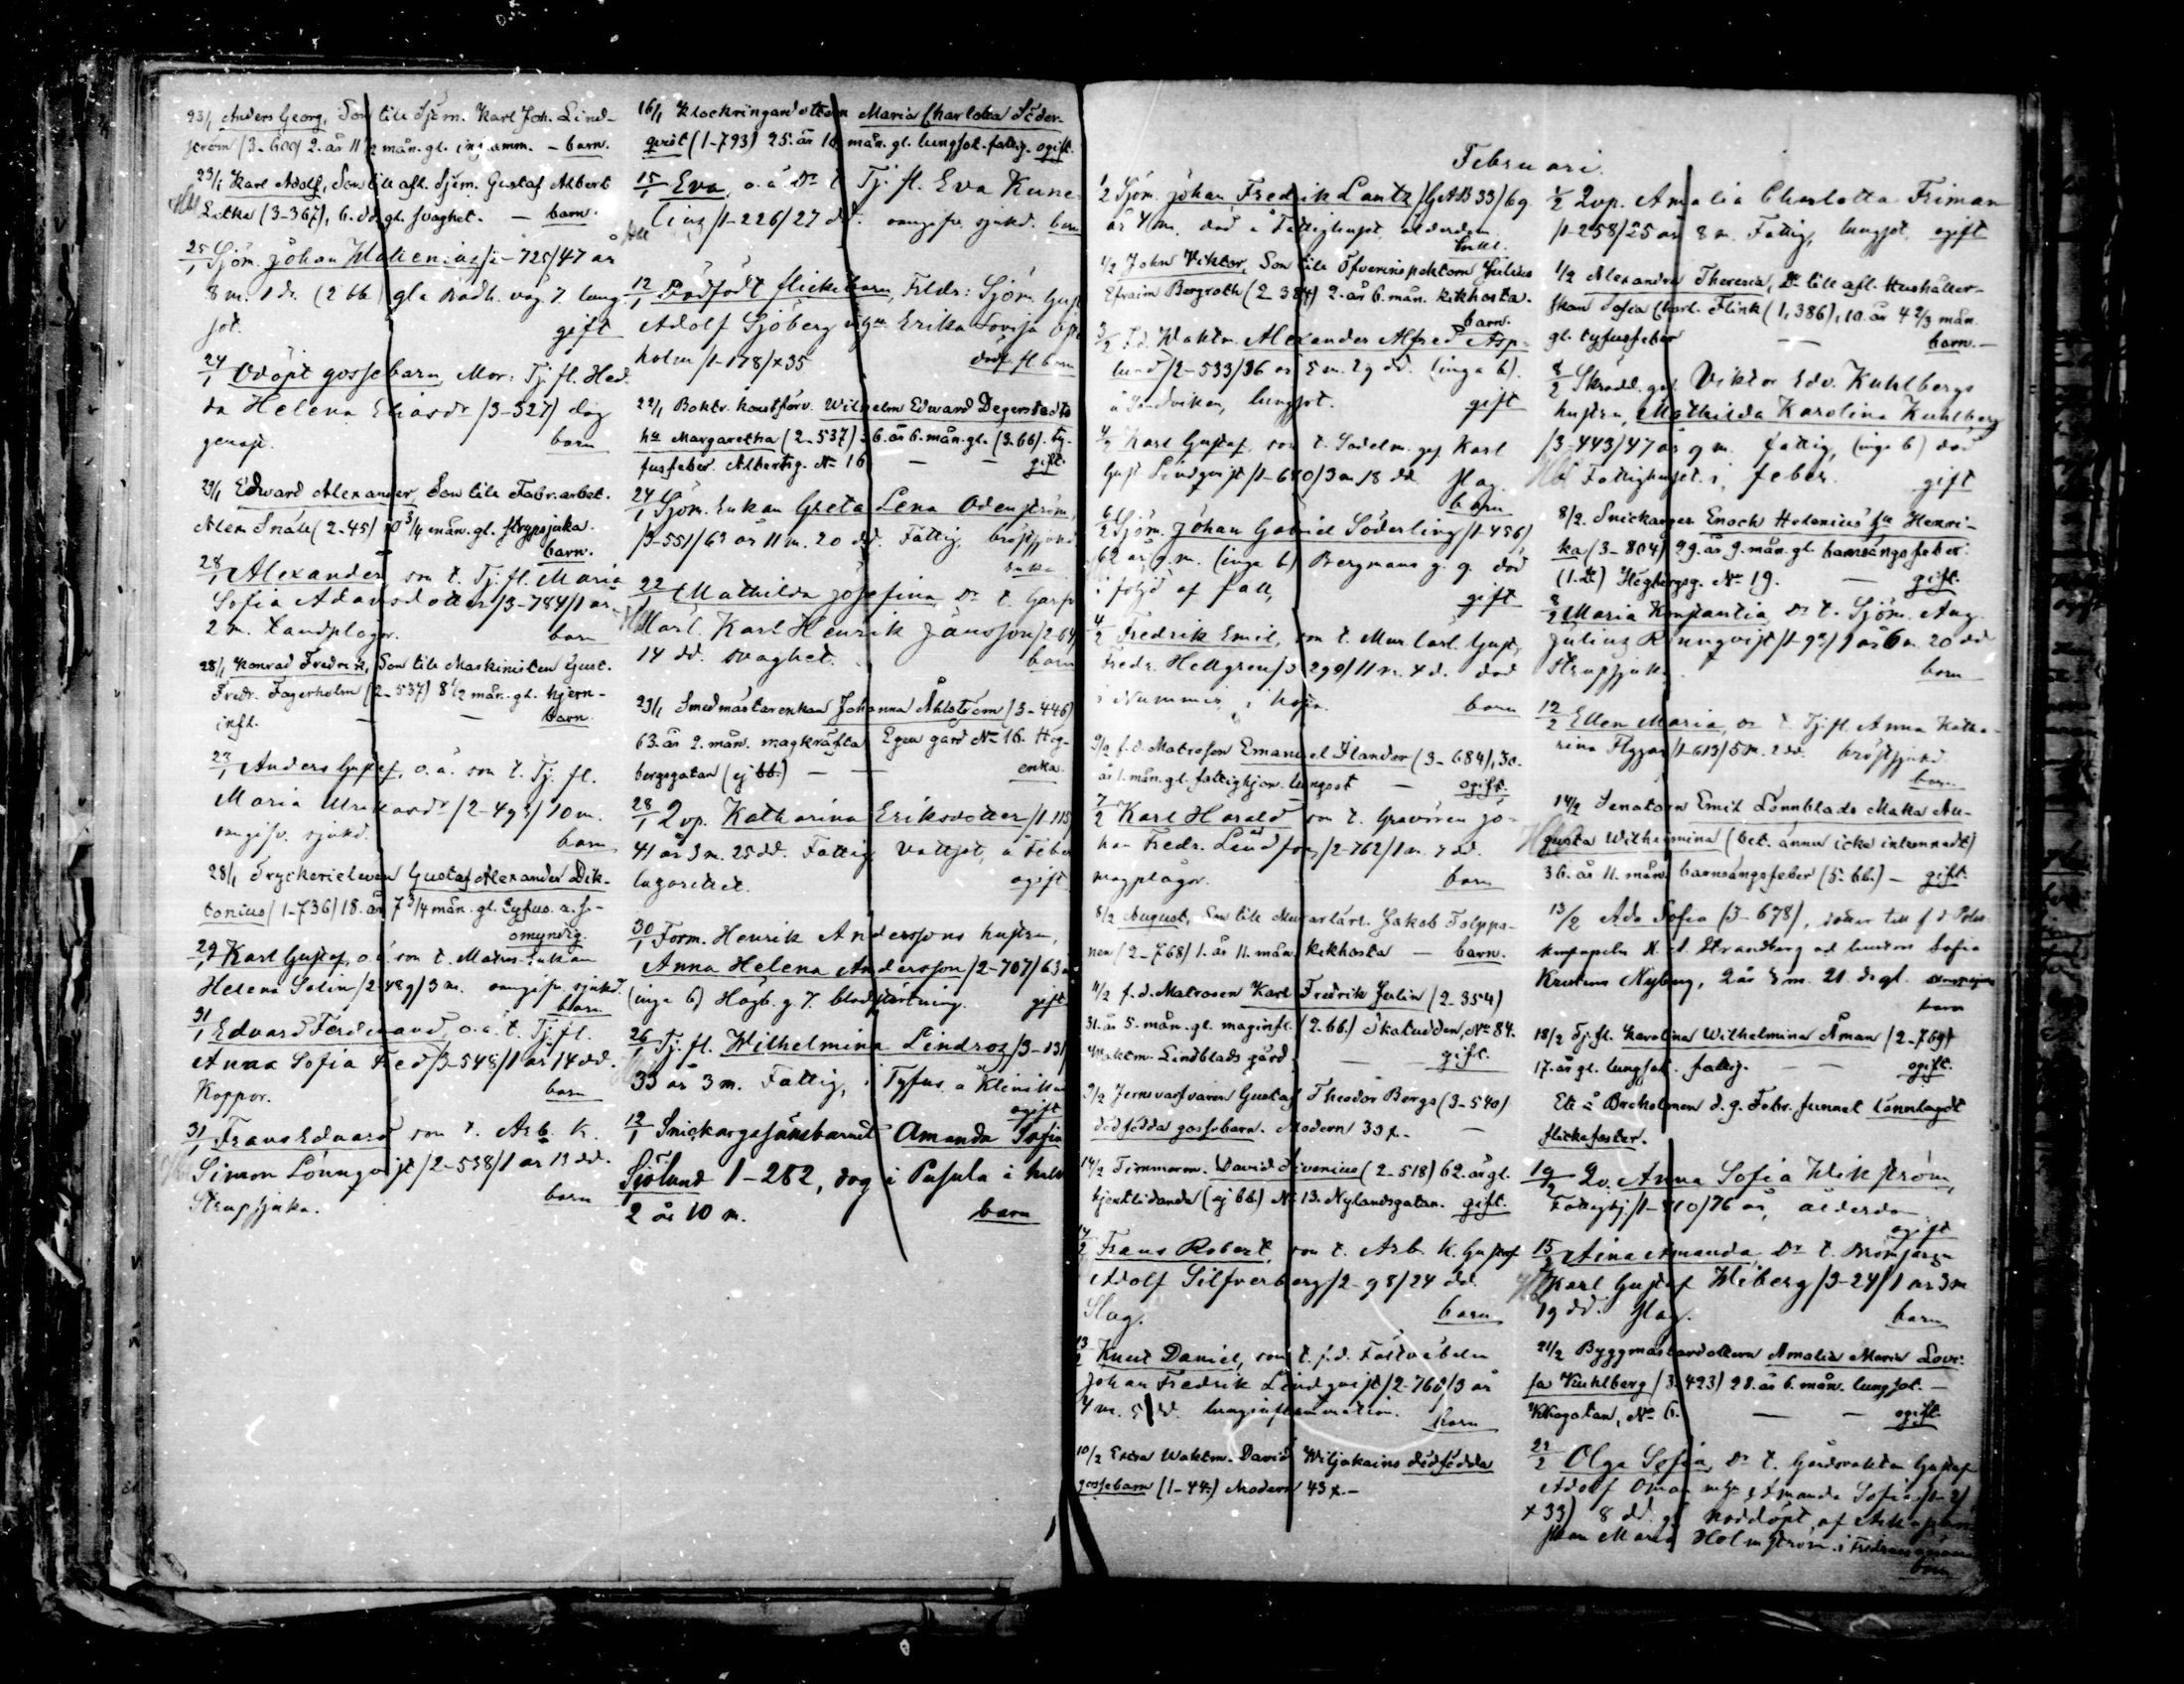 23/1 Anders Georg, Son till Sjöm. Karl Joh. Lind-
ström (3-600) 2. år 11 1/2 mån. gl. inflamm. - barn.
23/1 Karl Adolf, Son till afl. Sjöm. Gustaf Albert
(3-367), 6. dd. gl. svaghet. — barn.
25/1 Sjöm. Johan /1-725/47 år
8 m. 1 d. (2 bb.) gla Badh. väg. 7. lung
sot. gift
24/1 Odöpt gossebarn, Mor: Tj. fl. Hed-
da Helena Eliasdr /3-327/ dog
genast. barn
23/1 Edward Alexander, Son till Fabr. arbet.
Alex Snäll (2-45) 10 3/4 mån. gl. strypsjuka.
barn.
28/1 Alexander son t. Tj. fl. Maria
Sofia Adamsdotter /3-784/1 år
2 m. tandplågor. barn
28/1 Konrad Fredrik, Son till Maskinisten Gust.
Fredr. Fagerholm (2-537) 8 1/2 mån. gl. hjern-
infl. — — barn.
23/1 Anders Gustaf, o.ä. son t. Tj. fl.
Maria /2-493/10 m.
omgifv. sjukd. barn
28/1 Tryckerieleven Gustaf Alexander Dik-
tonius (1-736) 18. år 7 3/4 mån. gl. tyfus. a. s-
omyndig.
29/1 Karl Gustaf, o.ä. son t. Matros Enkan
Helena Solin /2-489/3 m. omgifv. sjukd.
barn
31/1 Edvard Ferdinand, o.ä. t. Tj. fl.
Anna Sofia Fred /3-548/1 år 14 dd.
Koppor. barn
31/1 Frans Edvard son t. Arb. k.
Simon Lönnqvist /2-538/1 år 13 dd.
Strupsjuka. barn
16/1 Klockringaredottern Maria Charlotta Söder-
qvist (1-793) 25. år 10 mån. gl. lungsot. fattig. ogift.
15/1 Eva, o.ä. Dr t. Tj. fl. Eva Kune-
lius /1-226/27 dd. omgifv. sjukd. barn
12/1 Dödfödt flickebarn, Föräldr: Sjöm. Gust
Adolf Sjöberg o. Erika Lovisa
holm /1-178/x35 dödf. fl. barn
22/1 Boktr. konstförv. Wilhelm Edward Degerstedts
hu Margaretha (2-537) 6. år 6. mån. gl. (3. bb). ty-
fusfeber. Albertsg. No 16 — — gift.
24/1 Sjöm. Enkan Greta Lena Odenström,
/3-551/62 år 11 m. 20 dd. Fattig, bröstsjukd
enka
22/1 Mathilda Josefina Dr t. Garfv
Karl Henrik Jansson /2-64
14 dd. svaghet. barn
23/1 Smedmästarenkan Johanna Åhlström (3-446)
63. år 2. mån. magkräfta Egen gård No 16. Hög-
bergsgatan (ej bb.) — — enka.
28/1 2 vp. Katharina Eriksdotter /1-115
41 år 3 m. 25 dd. Fattig Vattsot, å Feber
lazarettet. ogift
30/1 Form. Henrik Anderssons hustru,
Anna Helena Andersson /2-707/63
(inga b) Högb. g. 7. blodstörtning. gift
26/1 Tj. fl. Wilhelmina Lindroos /3-131
33 år 3 m. Fattig, i Tyfus. å Kliniken
ogift
12/1 Snickaregesällsbarnet Amanda Sofia
Sjölund 1-262, dog i Pusula i
2 år 10 m. barn
Februari.
1/2 Sjöm. Johan Fredrik Lantz /GAB 33/69
år 4 m. död å Fattighuset, ålderdom
Enkl.
1/2 John Viktor, Son till Öfverinspektorn Julius
Efraim Bergroth (2-384) 2. år 6. mån. kikhosta.
barn.
3/2 F.d. Waktm. Alexander Alfred Asp-
lund /2-533/36 år 5 m. 29 dd. (inga b).
å Sandviken, lungsot. gift
4/2 Karl Gustaf, son t. Sadelm. ges Karl
Gust Lindqvist /1-680/3 m. 18 dd. slag
barn
6/2 Sjöm. Johan Gabriel Söderling /1-456/
62 år 9 m. (inga b) Bergmans g. 9. död
i följd af fall, gift
4/2 Fredrik Emil, son t. Mur. lärl. Gust.
Fredr. Hellgren /3-290/11 m. 4 d. död
i Nummis, i barn
9/2 f.d. Matrosen Emanuel Ilander (3-684), 30.
år 1. mån. gl. fattighjon. lungsot — ogift.
7/2 Karl Harald son t. Gravören Jo-
han Fredr. Lindfors /2-762/1 m. 7 dd.
magplågor. barn
8/2 August, Son till Murarlärl. Jakob Tolppa-
nen (2-768) 1. år 11. mån. kikhosta — barn.
11/2 f.d. Matrosen Karl Fredrik Julin (2-354)
31. år 5. mån. gl. maginfl. (2. bb.) Skatudden, No 84.
Waktm. Lindblads gård — — gift.
9/2 Jernvarfvaren Gustaf Theodor Bergs (3-540)
dödfödda gossebarn. Modern 33 x. —
14/2 Timmerm. David Sivenius (2-518) 62. år gl.
hjertlidande (ej bb.) No 13. Nylandsgatan. gift.
14/2 Frans Robert, son t. Arb. k. Gustaf
Adolf Silfverberg /2-98/24 dd.
Slag. barn
13/2 Knut Daniel, son t. f.d. Fältväbeln
Johan Fredrik Lindqvist /2-760/3 år
4 m. 5 dd. lunginflammation. barn
10/2 Extra Waktm. David Wiljakains dödfödda
gossebarn (1-44.) Modern 43 x.-
1/2 2 vp. Amalia Charlotta Friman
/1-258/25 år 8 m. Fattig, lungsot. ogift
1/2 Alexandra Theresia, Dr. till afl. Hushåller-
skan Sofia Charl. Flink (1,386), 10. år 4 2/3 mån.
gl. tyfusfeber — barn. —
8/2 Skrädd. ges. Viktor Edv. Kuhlbergs
hustru, Mathilda Karolina Kuhlberg
/3-443/47 år 9 m. fattig, (inga b) död
Fattighuset i feber. gift
8/2. Snickaren Enoch Helenius' hu Henri-
ka (3-804) 29. år 9. mån. gl. barnsängsfeber.
(1. bb.) Högbergsg. No 19. — gift.
8/2 Maria Konstantia Dr t. Sjöm. Aug.
Julius Rönnqvist /1-92/1 år 6 m. 20 dd
Strupsjuk. barn
12/2 Ellen Maria, Dr t. Tj. fl. Anna Katha-
rina Flygar /1-613/5 m. 2 dd. bröstsjukd.
barn
14/2 Senatorn Emil Lönnblads Maka Au-
gusta Wilhelmina (bet. ännu icke inlemnadt)
36. år 11. mån. barnsängsfeber (5. bb.) — gift.
13/2 Ada Sofia (3-678), dotter till f d Polis
N. A. Strandberg och hustrun Sofia
Nyberg, 2 år 8 m. 21. d. gl.
barn
18/2 Tj. fl. Karolina Wilhelmina Åman (2-769)
17. år gl. lungsot. fattig. — — ogift.
Ett å Broholmen d. 9. Febr. funnet lönnlagdt
flickefoster.
19/2 2 v. Anna Sofia Wikström,
Fattighj. /1-810/76 år, ålderdom
ogift
15/2 Aina Amanda Dr t.
Karl Gustaf Wiberg /3-24/1 år 3 m
19 dd. slag. barn
21/2 Byggmästardottern Amalia Maria Lovi-
sa Kuhlberg (3-423) 28. år 6. mån. lungsot. —
Wikagatan, No 6. — — ogift.
22/2 Olga Sofia, Dr t. Gårdsvakten Gustaf
Adolf Öman o. Amanda Sofia /1-2/
x 33) 8 dd. gl. nöddöpt, af
Maria Holmström. i
barn